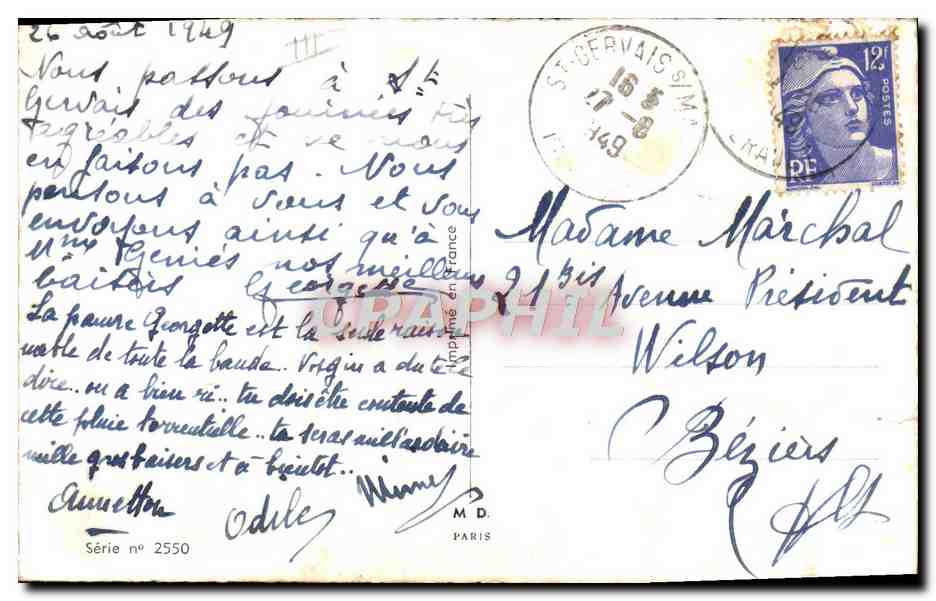 26 août 1949
Nous passons à St
Gervais des journées très
agréables et ne nous
en faisons pas. Nous
pensons à vous et vous
envoyons ainsi qu'à
Mme Geniés nos meilleurs
baisers Georgette
La pauvre Georgette est la seule raison
nable de toute la bande.. a du te le
dire.. on a bien ri.. tu dois être contente de
cette pluie torrentielle.. ta
mille gros baisers et à bientot..
Annetton
Odile
Série nº 2550
Imprimé en France
M D.
PARIS
ST-GERVAIS S/MARE
16 H
27 -8
1949
HERAULT
12F
POSTES
RF
Madame Marchal
21 Bis Avenue Président
Wilson
Béziers
CPAPHIL